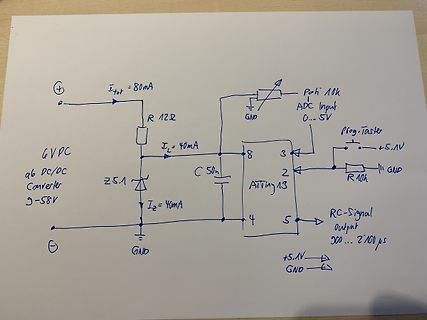 ⊕
I tot = 80mA
R 12Ω
Poti 10k
GND
ADC Input
0...5V
Prog.-Taster
+5.1V
6VDC
ab DC/DC
Converter
9-58V
I L = 40mA
8
3
C 50n
ATtiny13
2
R 10k
GND
Z5.1
I Z = 40mA
4
5
RC-Signal
Output
900...2100µs
⊖
GND
+5.1V
GND